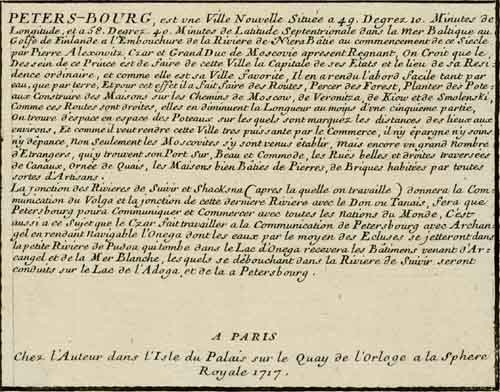 PETERS-BOURG, est vne Ville Nouvelle Située a 49. Degrez 10. Minutes de
Longitude, et a 58. Degrez 40. Minutes de Latitude Septentrionale dans la Mer Baltique au
Golfe de Finlande a l'Embouchure de la Riviere de Niera Batie au commencement de ce Siecle
par Pierre Alexowitz Czar et Grand Duc de Moscovie apresent Regnant, On Croit que le
Dessein de ce Prince est de faire de cette Ville la Capitale de ses Etats et le lieu de sa Resi
dence ordinaire, et comme elle est sa Ville favorite, Il en a rendu l'abord facile tant par
eau, que par terre, Et pour cet effet il a fait faire des Routes, Percer des Forest, Planter des Pote-
aux Construire des Maisons sur les Chemins de Moscou, de Veronitza, de Kiow et de Smolenski,
Comme ces Routes sont droites, elles en diminuent la Longueur au moins d'une cinquieme partie,
On trouve d'espace en espace des Poteaux sur les quels sont marquez les distances des lieux aux
environs, Et comme il veut rendre cette Ville tres puissante par le Commerce, il n'y épargne n'y soins
n'y dépance, Non Seulement les Moscovites s'y sont venus établir, Mais encore vn grand Nombre
d'Etrangers, qui y trouvent son Port Sur, Beau et Commode, les Rües belles et droites traversées
de Canaux, Ornée de Quais, les Maisons bien Baties de Pierres, de Briques habitées par toutes
sortes d'Artisans.
La jonction des Rivieres de Suivir et Shacksna (apres la quelle on travaille) donnera la Com-
munication du Volga et la jonction de cette derniere Riviere avec le Don ou Tanais, fera que
Petersbourg poura Communiquer et Commercer avec toutes les Nations du Monde, C'est
aussi a ce sujet que le Czar fait travailler a la Communication de Petersbourg avec Archan
gel en rendant Navigable l'Onega dont les eaux par le moyen des Ecluses se jetteront dans
la petit Riviere de Pudou qui tombe dans le Lac d'Onega recevera les Bâtimens venant d'Ar-
cangel et de la Mer Blanche, lesquels se débouchant dans la Riviere de Suivir seront
conduits sur le Lac de l'Adoga, et de la a Petersbourg.
A PARIS
Chez l'Auteur dans l'Isle du Palais sur le Quay de l'Orloge a la Sphere
Royale 1717.